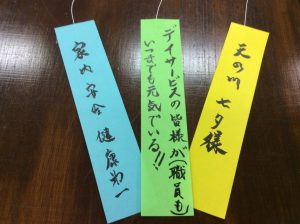 天の川 七夕様
デイサービスの皆様が(職員も)
いつまでも元気でいる!!
家内安全 健康第一